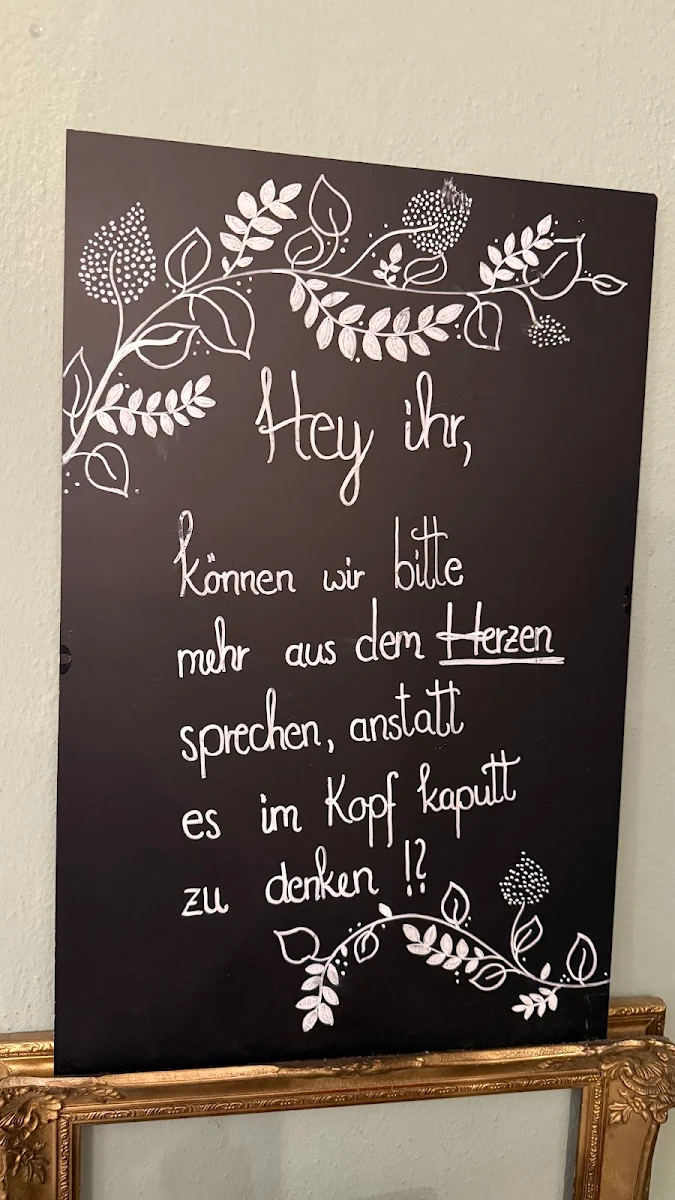 Hey ihr,
können wir bitte
mehr aus dem Herzen
sprechen, anstatt
es im Kopf kaputt
zu denken !?